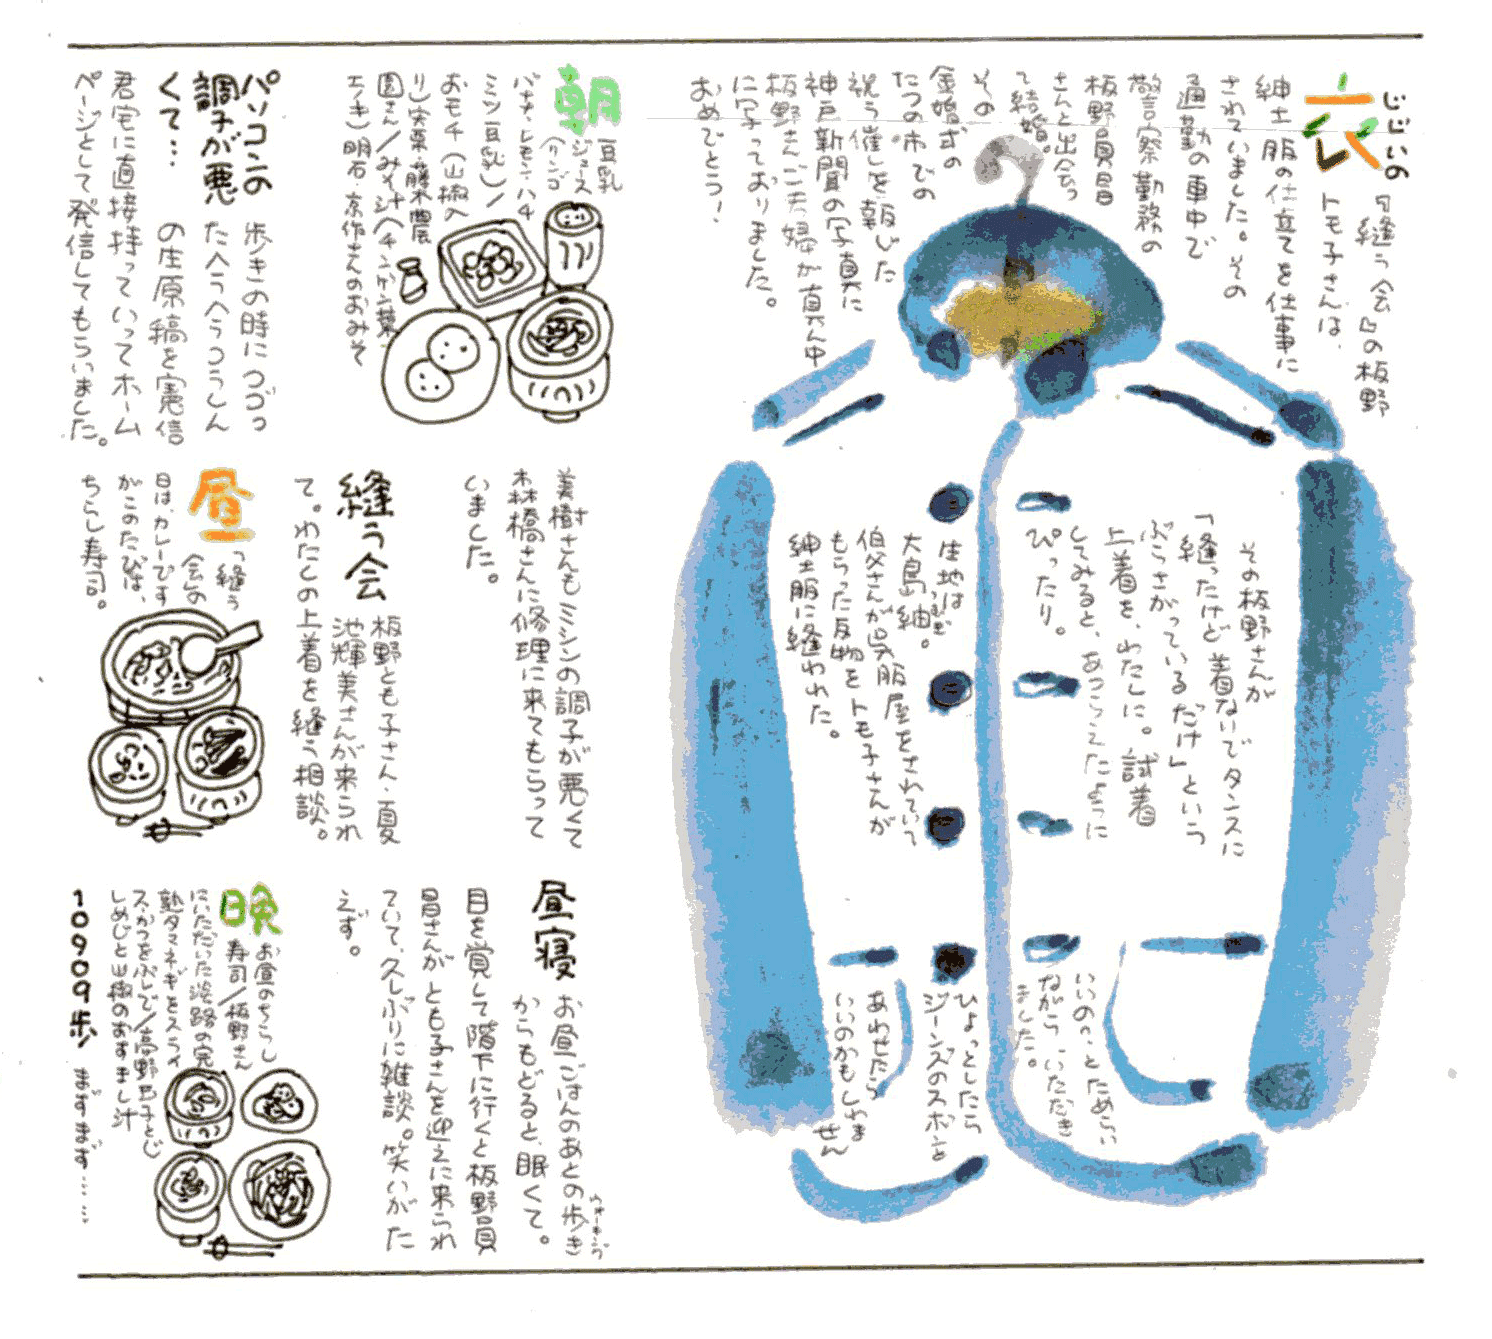 じじいの
衣
『縫う会』の板野
トモ子さんは、
紳士服の仕立てを仕事に
されていました。その
通勤の車中で
警察勤務の
板野員昌
さんと出会っ
て結婚。
その
金婚式の
たつの市での
祝う催しを報じた
神戸新聞の写真に
板野さんご夫婦が真ん中
に写っておりました。
おめでとう!
その板野さんが
「縫ったけど着ないでタンスに
ぶらさがっている“だけ”」という
上着を、わたしに。試着
してみると、あつらえたように
ぴったり。
生地は
大島紬。
つむぎ
伯父さんが呉服屋をされていて
もらった反物をトモ子さんが
紳士服に縫われた。
いいの・・とためらい
ながら いただき
ました。
ひょっとしたら
ジーンズのズボンと
あわせたら
いいのかもしれま
せん
朝
豆乳
ジュース
(リンゴ
バナナ・レモン・ハチ
ミツ・豆乳)/
おモチ(山椒入
り)実栗・藤本農
園さん/みそ汁(チンゲン菜
エノキ)明石・京作さんのおみそ
パソコンの
調子が悪
くて…
歩きの時につづっ
たへうへうつうしん
の生原稿を寛信
君宅に直接持っていってホーム
ページとして発信してもらいました。
美樹さんもミシンの調子が悪くて
森橋さんに修理に来てもらって
いました。
縫う会
板野とも子さん・夏
池輝美さんが来られ
て。わたしの上着を縫う相談。
昼
「縫う
会」の
日は、カレーです
がこのたびは、
ちらし寿司。
昼寝
お昼ごはんのあとの歩き
ウォーキング
からもどると、眠くて。
目を覚して階下に行くと板野員
昌さんが とも子さんを迎えに来られ
ていて、久しぶりに雑談。笑いがた
えず。
晩
お昼のちらし
寿司/板野さん
にいただいた淡路の完
熟タマネギをスライ
ス・かつをぶしで/高野豆子どじ
しめじと山椒のおすまし汁
10909歩
まずまず……